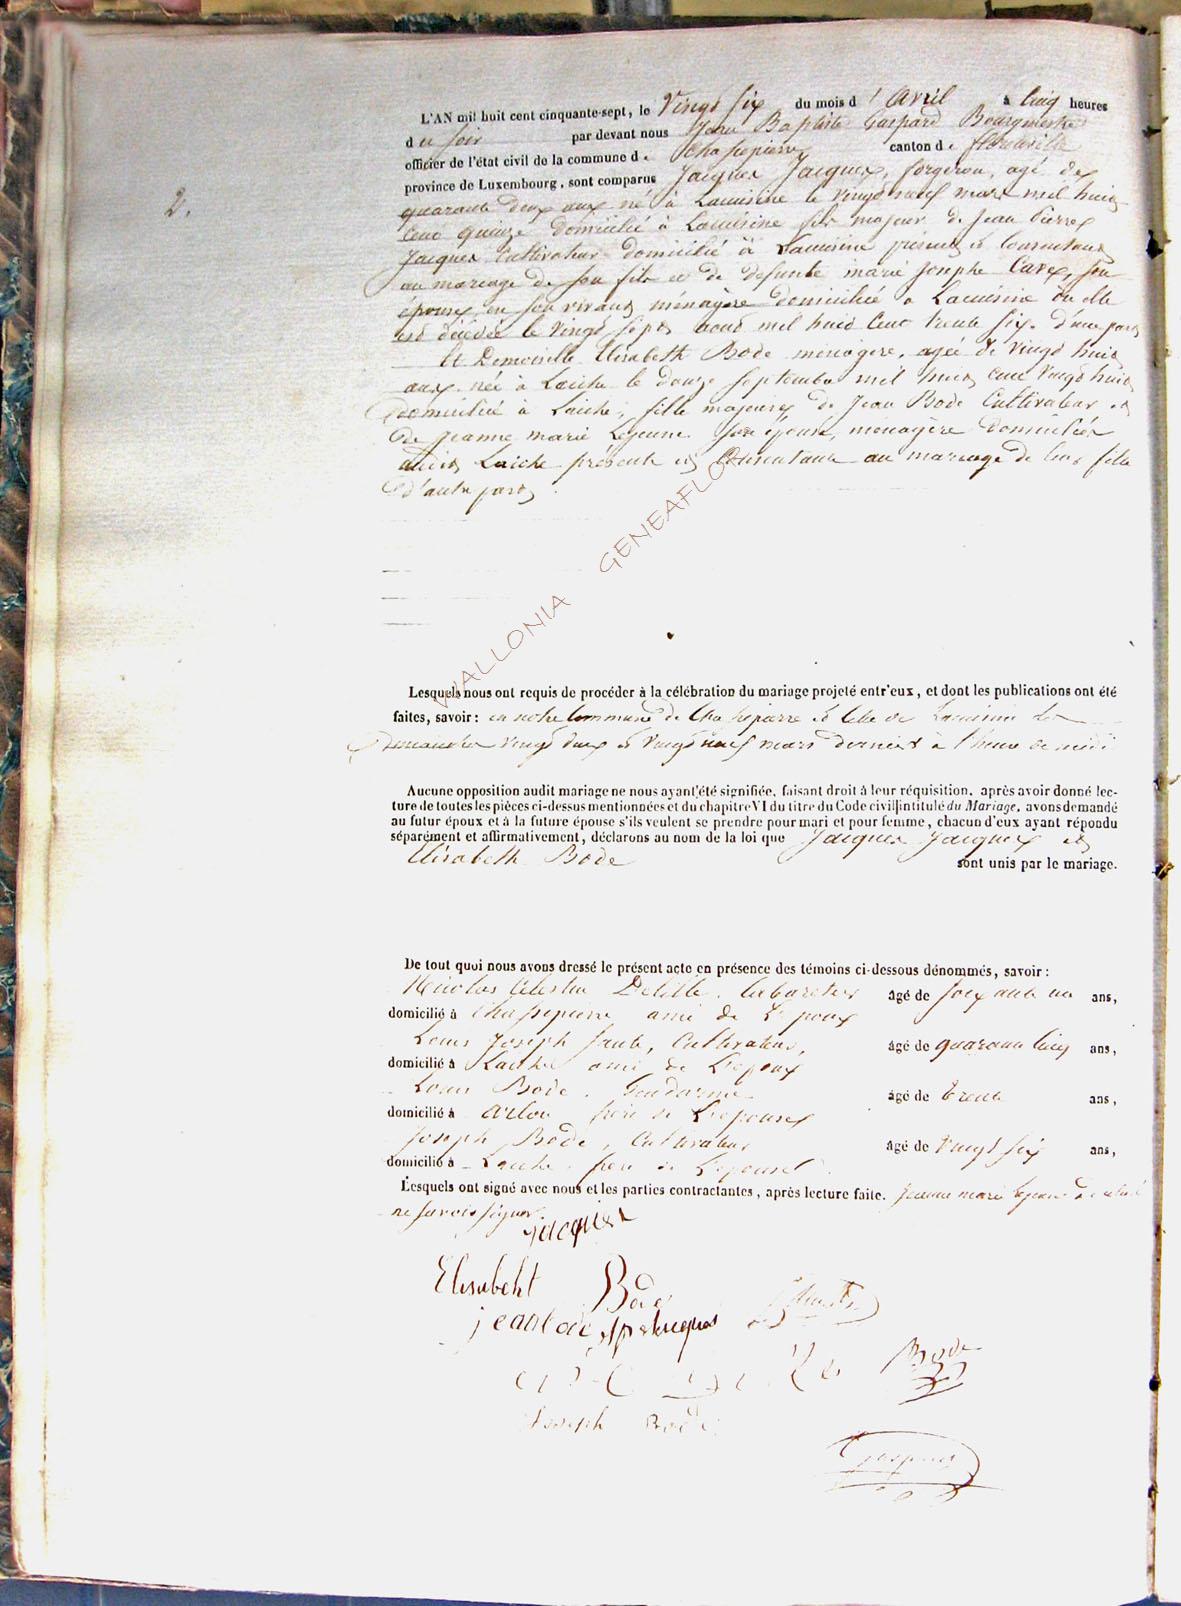 L'AN mil huit cent cinquante-sept, le Vingt Six du mois d'Avril à Cinq heures
du soir par devant nous Jean Baptiste Gaspard Bourgmestre
officier de l'état civil de la commune de Chassepierre canton de florenville
province de Luxembourg, sont comparus Jacques Jacques, forgeron, agé de
2.
quarante deux ans né à Lacuisine le vingt neuf mars mil huit
Cent quinze domicilié à Lacuisine fils majeur de Jean Pierre
Jacques Cultivateur domicilié à Lacuisine présent et Consentant
au mariage de son fils et de defunte marie Josephe Carez, son
épouse en son vivant ménagère domiciliée à Lacuisine où elle
est décédée le vingt sept aout mil huit Cent trente six. d'une part
Et Demoiselle Elisabeth Bode ménagère, agée de vingt huit
ans née à Laiche le douze septembre mil huit cent vingt huit
domiciliée à Laiche, fille majeure de Jean Bode Cultivateur et
de Jeanne marie Lejeune son épouse, menagère domiciliés
audit Laiche présents et Consentants au mariage de leur fille
d'autre part
WALLONIA GENEAFLOR
Lesquels nous ont requis de procéder à la célébration du mariage projeté entr'eux, et dont les publications ont été
faites, savoir: en notre Commune de Chassepierre et Celle de Lacuisine les
Dimanches vingt deux et vingt neuf mars derniers à l'heure de midi
Aucune opposition audit mariage ne nous ayant été signifiée, faisant droit à leur réquisition, après avoir donné lec-
ture de toutes les pièces ci-dessus mentionnées et du chapitre VI du titre du Code civil intitulé du Mariage, avons demandé
au futur époux et à la future épouse s'ils veulent se prendre pour mari et pour femme, chacun d'eux ayant répondu
séparément et affirmativement, déclarons au nom de la loi que Jacques Jacques et
Elisabeth Bode sont unis par le mariage.
De tout quoi nous avons dressé le présent acte en présence des témoins ci-dessous dénommés, savoir:
Nicolas Celestin Delille, Cabaretier âgé de soixante un ans,
domicilié à Chassepierre ami de L'epoux
Louis Joseph, Cultivateur, âgé de quarante Cinq ans,
domicilié à Laiche ami de L'epoux
Louis Bode, Gendarme âgé de trente ans,
domicilié à Arlon frère de L'epouse
Joseph Bode, Cultivateur âgé de Vingt six ans,
domicilié à Laiche, frere de L'epouse
Lesquels ont signé avec nous et les parties contractantes, après lecture faite. Jeanne marie Lejeune a déclaré
ne savoir signer
Jacques
Elisabeht Bode
jean bode jpjacques
Bode
Joseph Bode
Gaspard